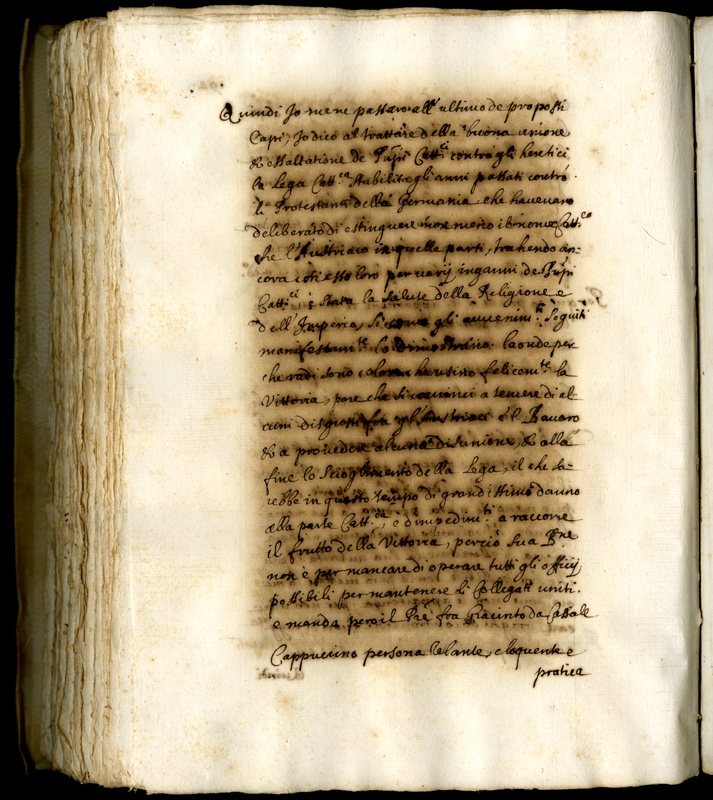 Quindi Jo mene passarò all' ultimo de proposti
Capi, Jo dico al trattare della buona unione
& essaltatione de Prpi Catt.ci contro gli heretici
la Lega Catt.ca stabilita gli anni passati contro
li Protestanti della Germania, che havevano
deliberato di estinguere non meno il nome Catt.co
che l'Austriaco in quelle parti, trahendo an-
cora con esso loro per varij inganni de Prpi
Catt.ci, è stata la salute della Religione e
dell' Imperio, si come gli avvenim.ti seguiti
manifestam.te lo dimostrano. la onde per
che radi sono coloro che usino felicem.te la
Vittoria, pare che si cominci a temere di al-
cuni disgusti fra gl' Austriaci e 'l Bavaro
& a provedere alcuna disunione, & alla
fine lo scioglimento della Lega, il che sa-
rebbe in questo tempo di grandissimo danno
alla parte Catt.ca, e d'impedim.to a raccorre
il frutto della Vittoria, perciò sua B.ne
non è per mancare di operare tutti gli officij
possibili per mantenere li Collegati uniti.
e manda però il Pre fra Giacinto da Casale
Cappuccino persona zelante, eloquente e
pratica